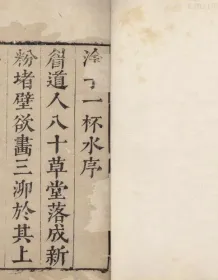 一杯水序
道人八十草堂落成新
粉堵壁欲畫三泖於其上